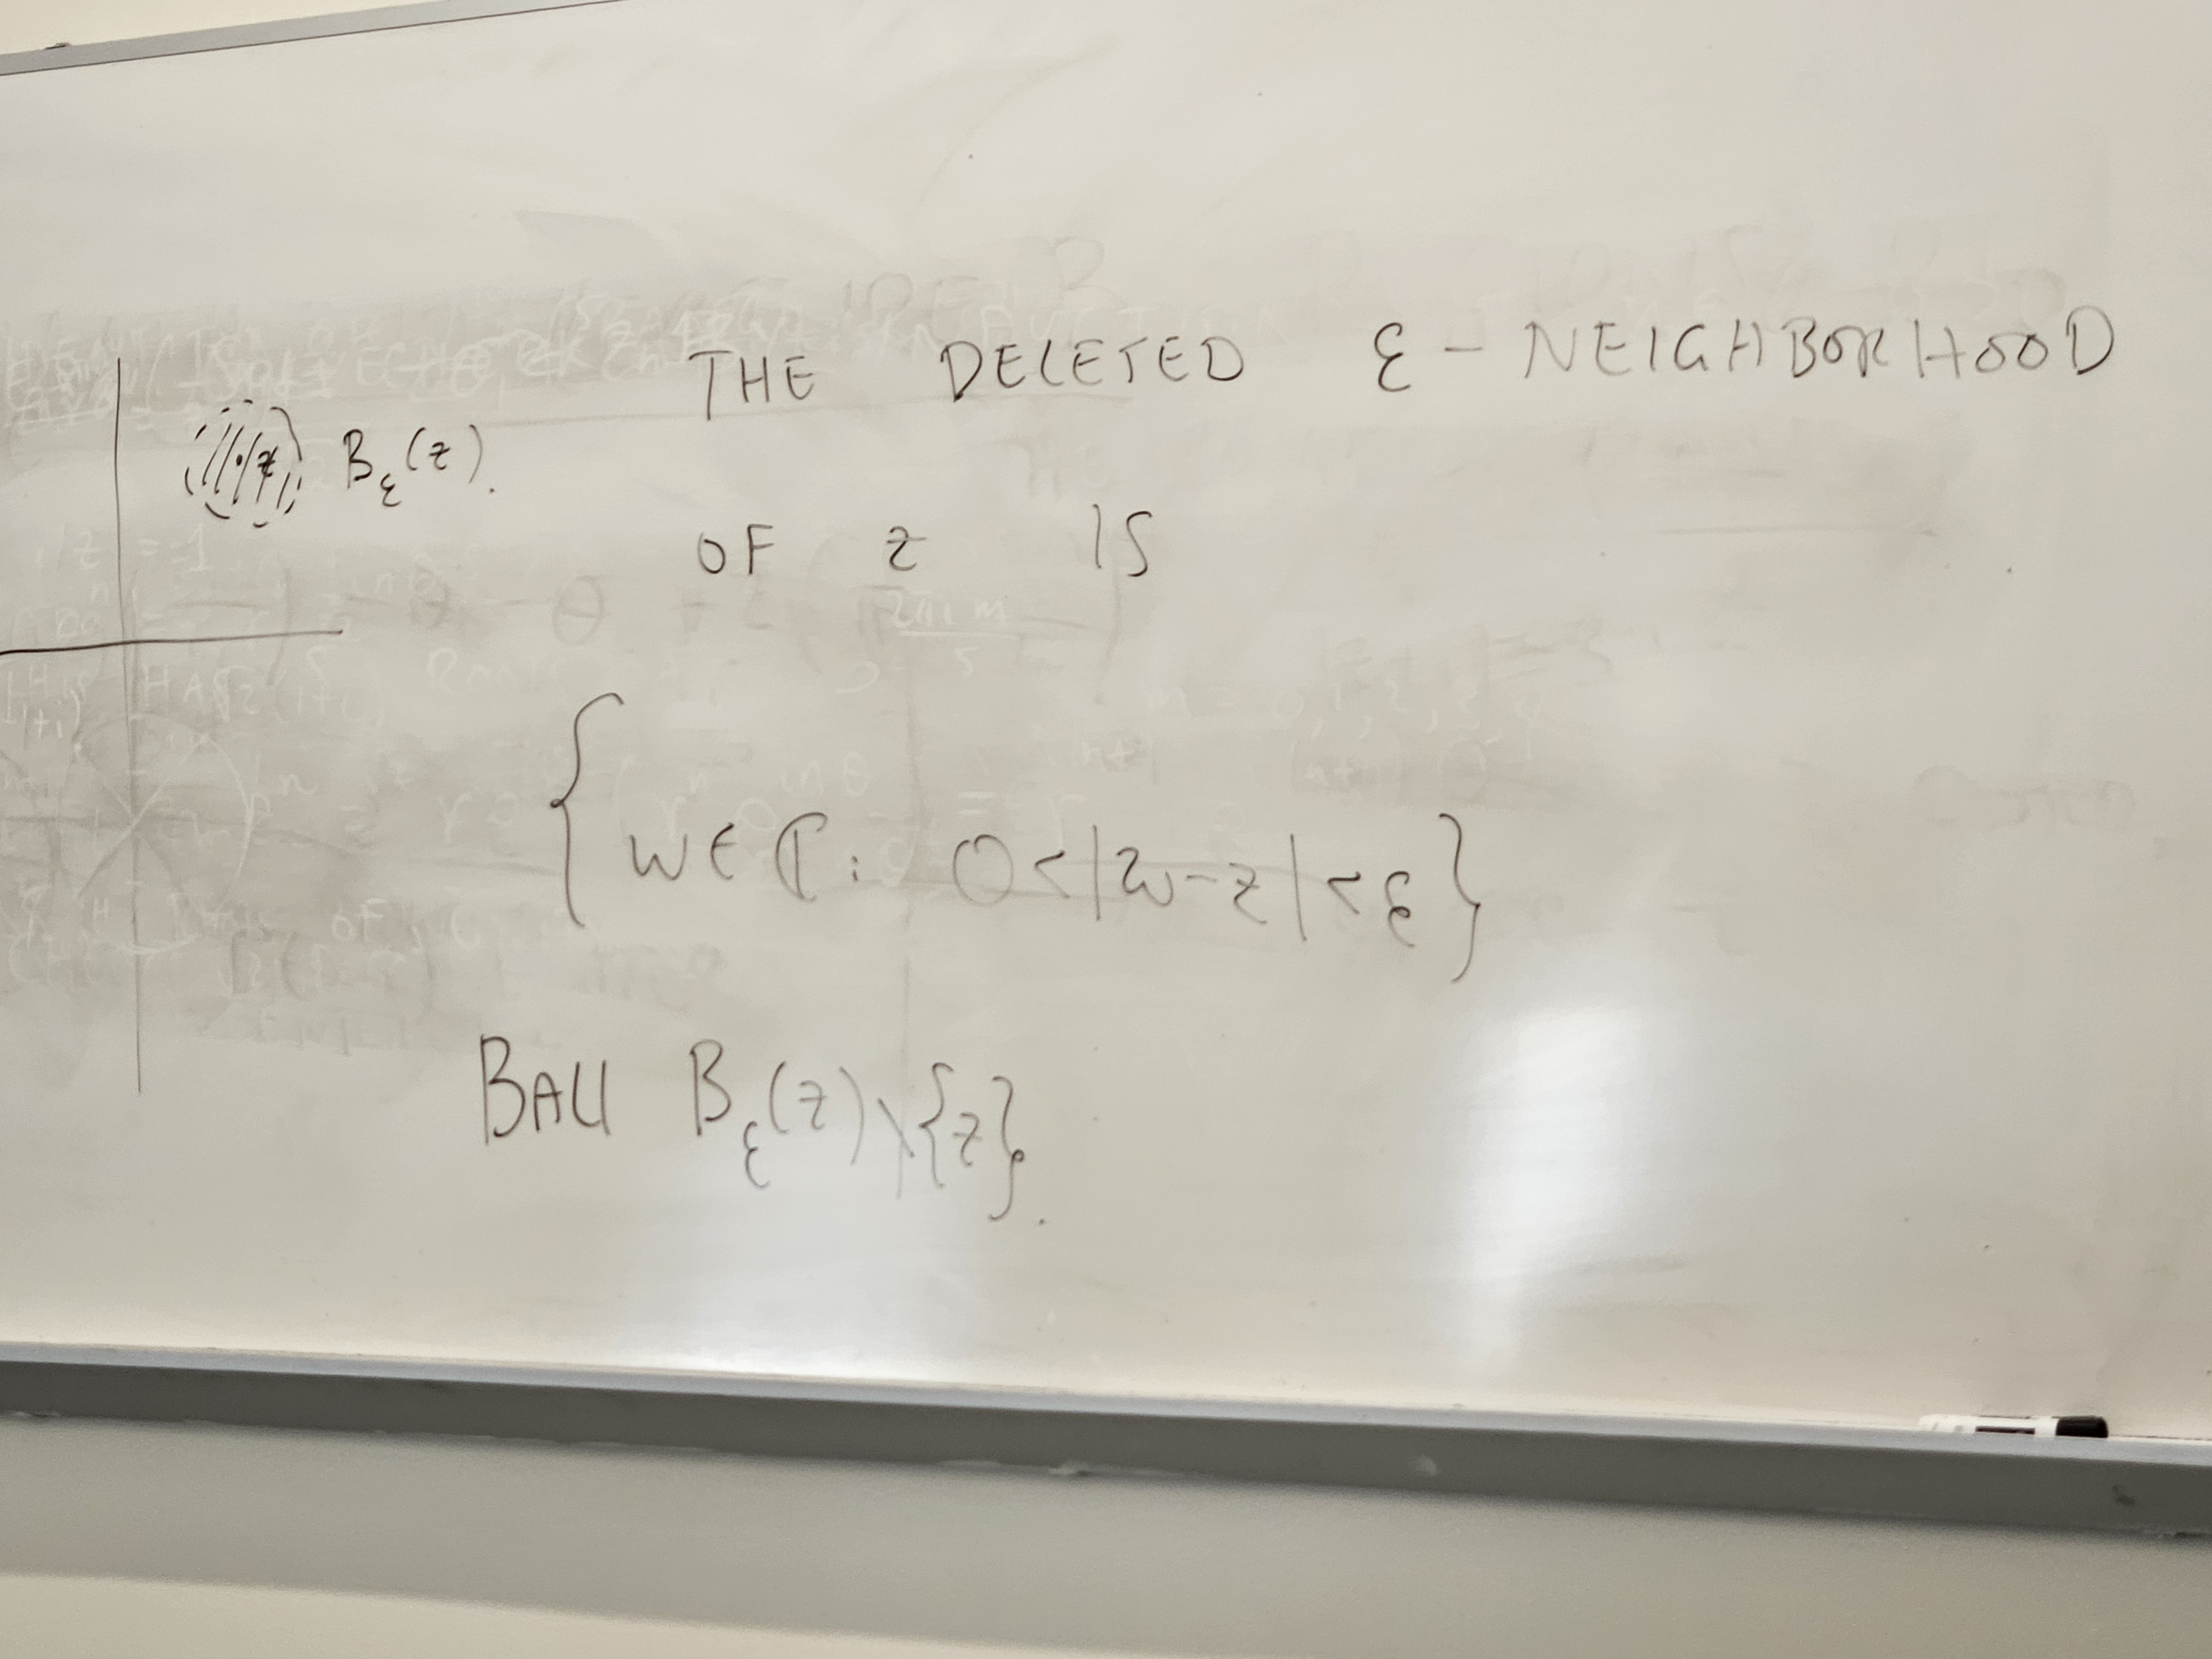 z
B_ε(z).
THE DELETED ε-NEIGHBORHOOD
OF z IS
{w∈ℂ: 0<|w-z|<ε}
BALL B_ε(z)\{z}.